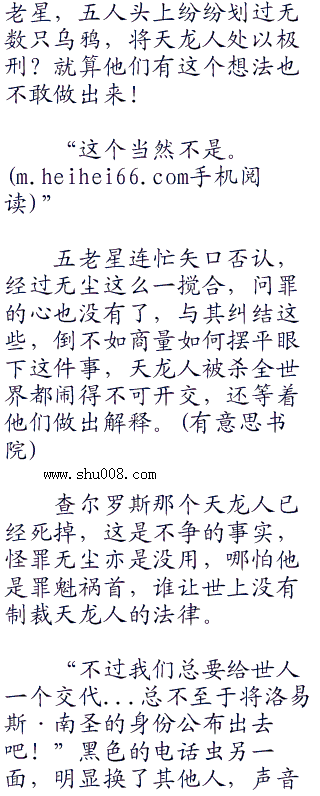 老星，五人头上纷纷划过无
数只乌鸦，将天龙人处以极
刑？就算他们有这个想法也
不敢做出来！
“这个当然不是。
(m.heihei66.com手机阅
读)”
五老星连忙矢口否认，
经过无尘这么一搅合，问罪
的心也没有了，与其纠结这
些，倒不如商量如何摆平眼
下这件事，天龙人被杀全世
界都闹得不可开交，还等着
他们做出解释。(有意思书
院)
www.shu008.com
查尔罗斯那个天龙人已
经死掉，这是不争的事实，
怪罪无尘亦是没用，哪怕他
是罪魁祸首，谁让世上没有
制裁天龙人的法律。
“不过我们总要给世人
一个交代...总不至于将洛易
斯·南圣的身份公布出去
吧！”黑色的电话虫另一
面，明显换了其他人，声音